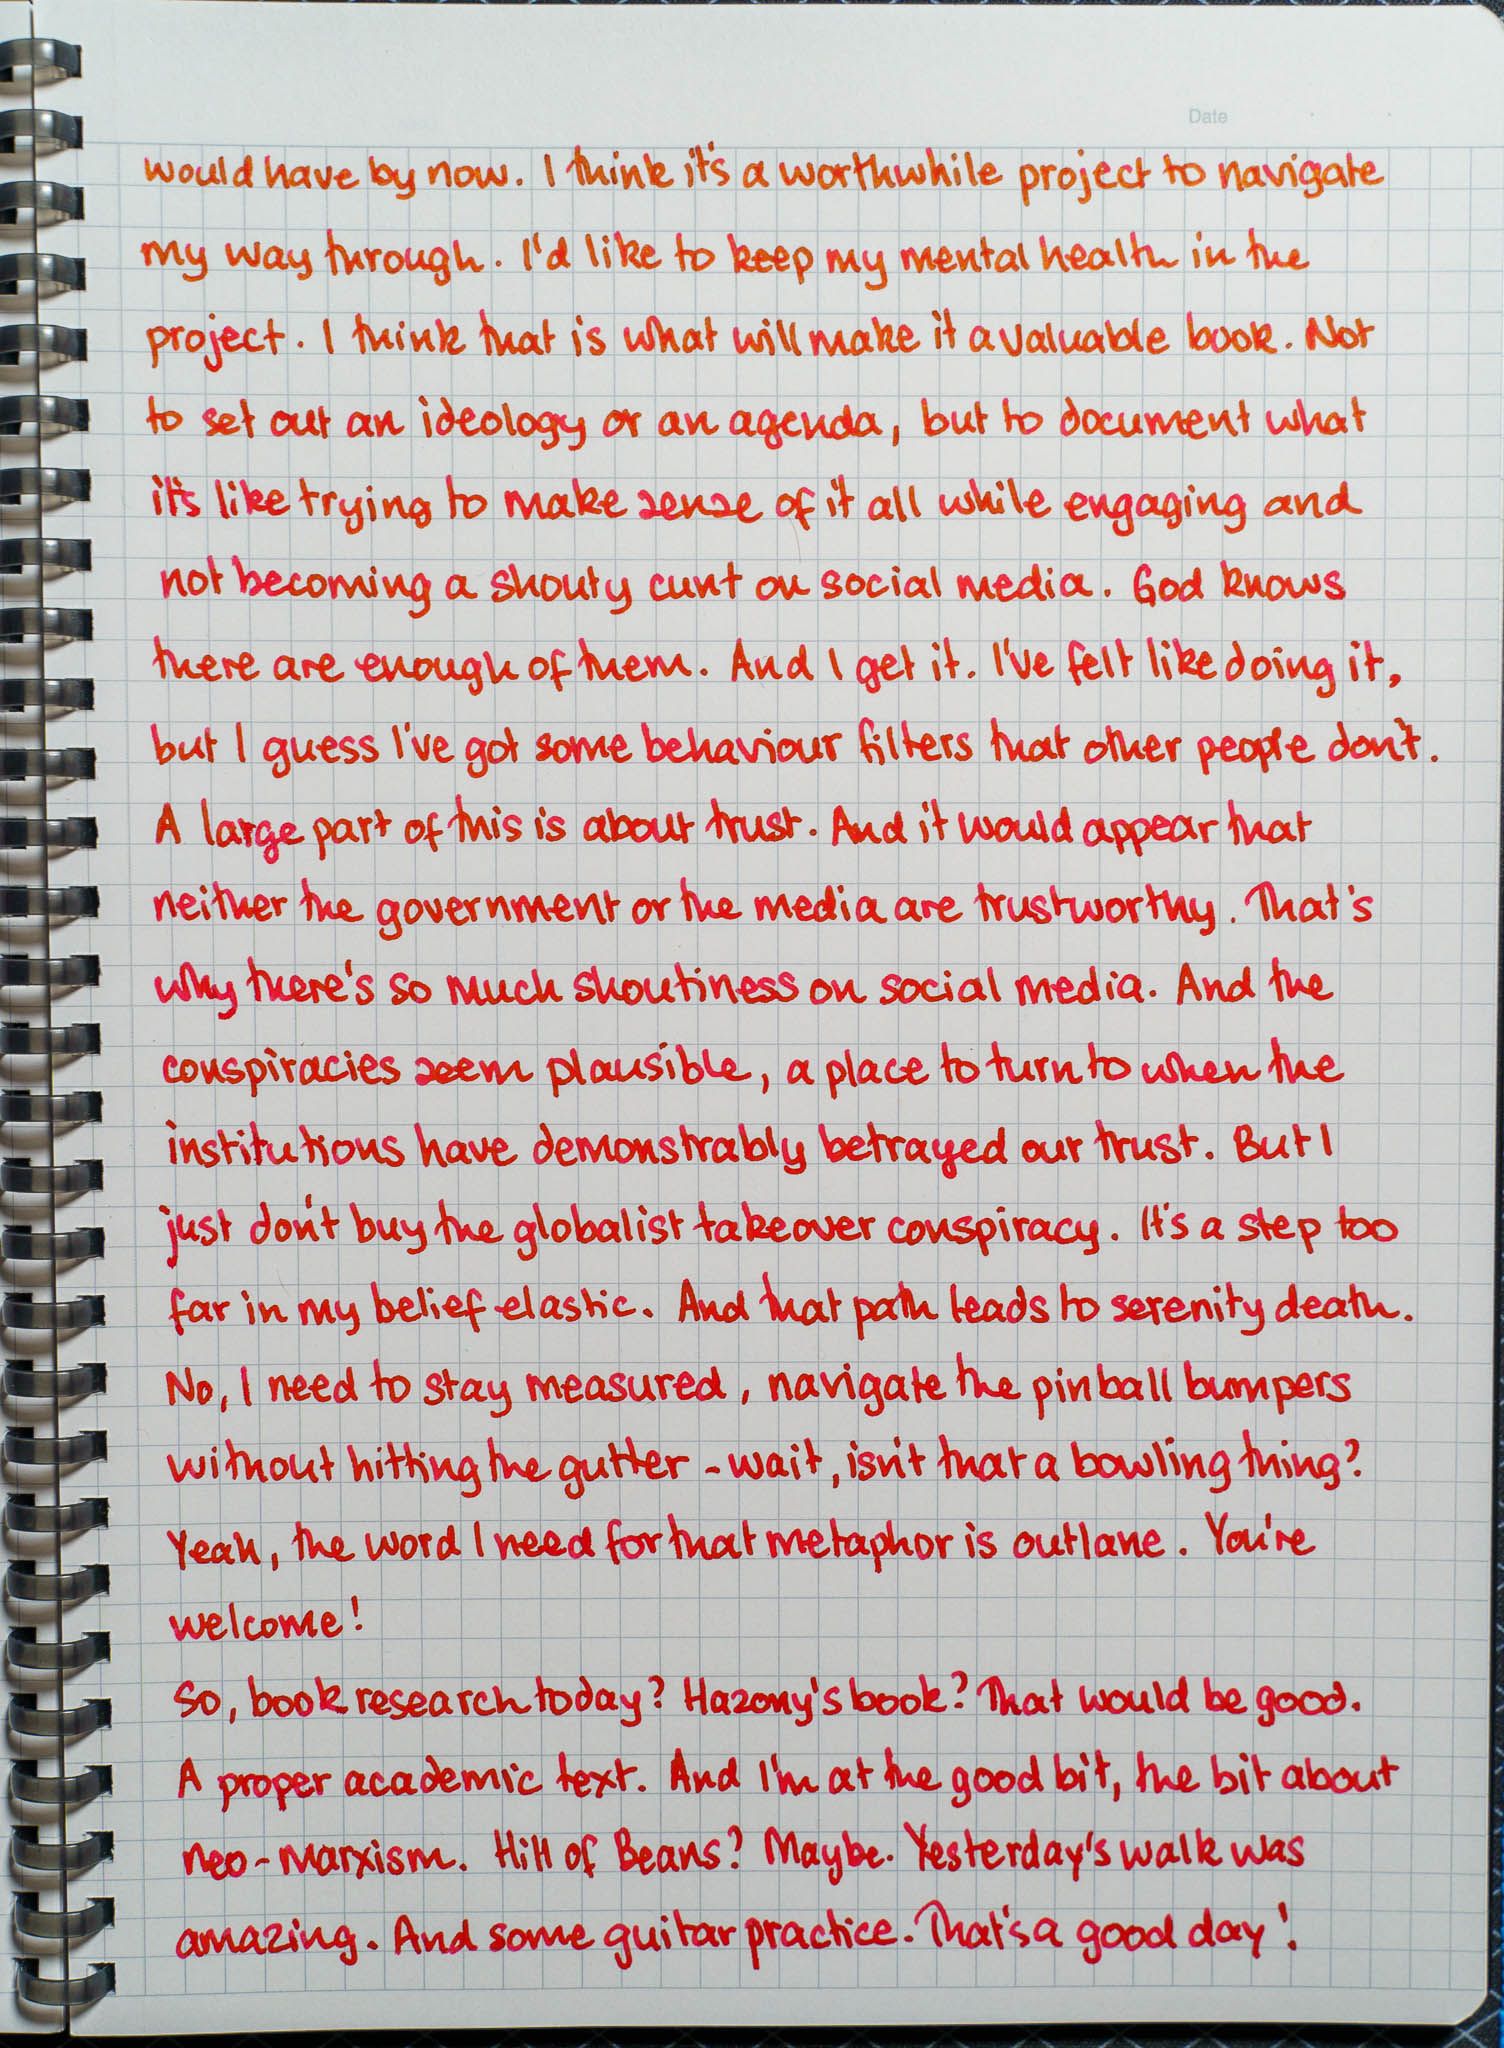 Date
would have by now. I think it's a worthwhile project to navigate
my way through. I'd like to keep my mental health in the
project. I think that is what will make it a valuable book. Not
to set out an ideology or an agenda, but to document what
it's like trying to make sense of it all while engaging and
not becoming a shouty cunt on social media. God knows
there are enough of them. And I get it. I've felt like doing it,
but I guess I've got some behaviour filters that other people don't.
A large part of this is about trust. And it would appear that
neither the government or the media are trustworthy. That's
why there's so much shoutiness on social media. And the
conspiracies seem plausible, a place to turn to when the
institutions have demonstrably betrayed our trust. But I
just don't buy the globalist takeover conspiracy. It's a step too
far in my belief elastic. And that path leads to serenity death.
No, I need to stay measured, navigate the pinball bumpers
without hitting the gutter - wait, isn't that a bowling thing?
Yeah, the word I need for that metaphor is outlane. You're
welcome!
So, book research today? Hazony's book? That would be good.
A proper academic text. And I'm at the good bit, the bit about
neo-marxism. Hill of Beans? Maybe. Yesterday's walk was
amazing. And some guitar practice. That's a good day!